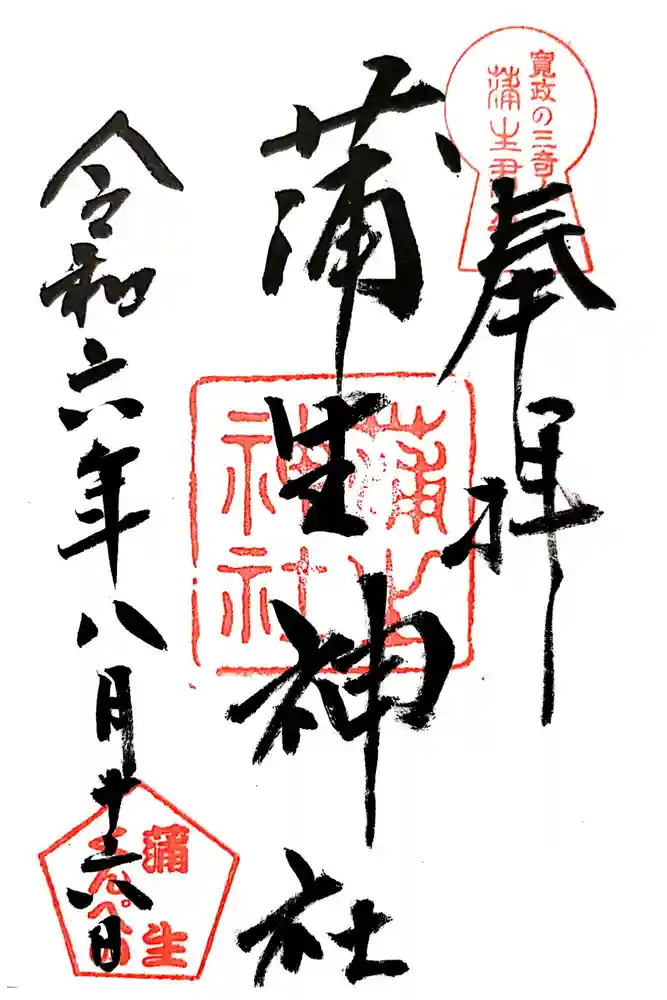 奉拝
寛政の三奇
蒲生君
蒲生神社
蒲生神社
令和六年八月十六日
蒲生